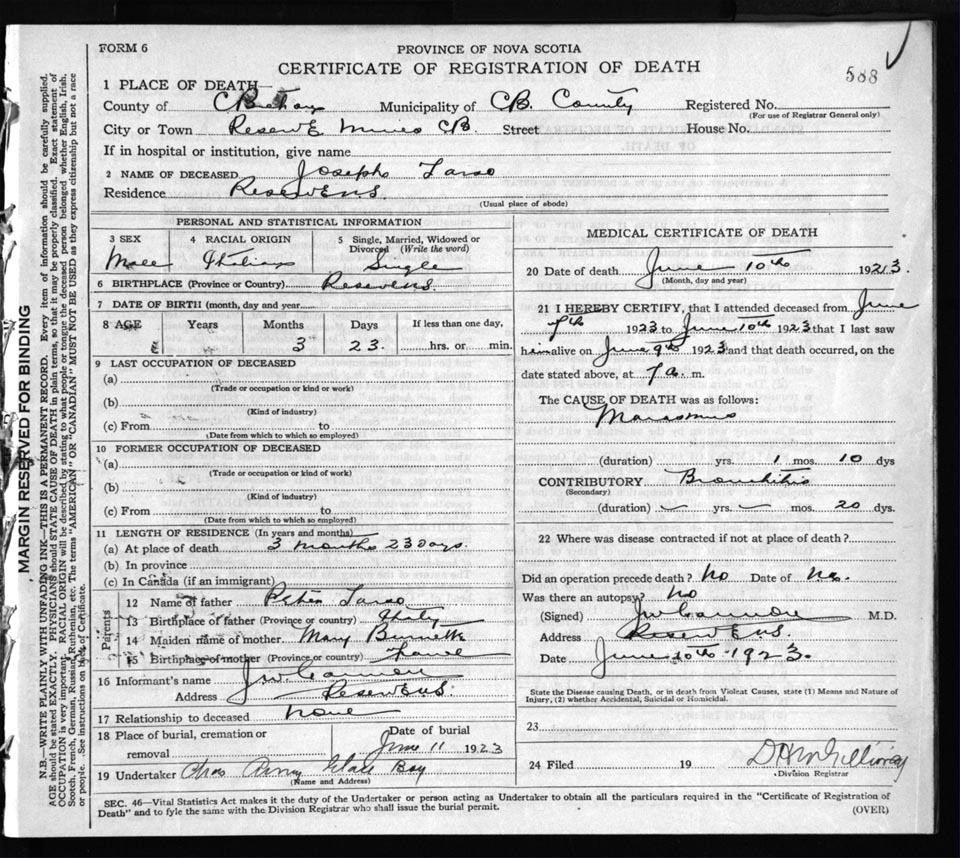 FORM 6
PROVINCE OF NOVA SCOTIA
CERTIFICATE OF REGISTRATION OF DEATH
588
1 PLACE OF DEATH—
County of C Breton Municipality of C.B. County Registered No.
(For use of Registrar General only)
City or Town Reserve Mines CB. Street House No.
If in hospital or institution, give name
2 NAME OF DECEASED Joseph
Residence Reserve N.S.
(Usual place of abode)
PERSONAL AND STATISTICAL INFORMATION
3 SEX 4 RACIAL ORIGIN 5 Single, Married, Widowed or Divorced (Write the word)
Male Single
6 BIRTHPLACE (Province or Country) Reserve N.S.
7 DATE OF BIRTH (month, day and year)
8 AGE Years Months Days If less than one day,
3 23. hrs. or min.
9 LAST OCCUPATION OF DECEASED
(a)
(Trade or occupation or kind or work)
(b)
(Kind of industry)
(c) From to
(Date from which to which so employed)
10 FORMER OCCUPATION OF DECEASED
(a)
(Trade or occupation or kind of work)
(b)
(Kind of industry)
(c) From to
(Date from which to which so employed)
11 LENGTH OF RESIDENCE (In years and months)
(a) At place of death 3 months 23 days.
(b) In province
(c) In Canada (if an immigrant)
Parents
12 Name of father Peter
13 Birthplace of father (Province or country) Italy
14 Maiden name of mother Mary
15 Birthplace of mother (Province or country)
16 Informant's name
Address Reserve N.S.
17 Relationship to deceased none
18 Place of burial, cremation or removal Date of burial
June 11 1923
19 Undertaker Glace Bay
(Name and Address)
MEDICAL CERTIFICATE OF DEATH
20 Date of death June 10th 1923.
(Month, day and year)
21 I HEREBY CERTIFY, that I attended deceased from June
7th 1923 to June 10th 1923 that I last saw
him alive on June 9th 1923 and that death occurred, on the
date stated above, at 7 a. m.
The CAUSE OF DEATH was as follows:
Marasmus
(duration) yrs. 1 mos. 10 dys
CONTRIBUTORY Bronchitis
(Secondary)
(duration) yrs. mos. 20 dys.
22 Where was disease contracted if not at place of death?
Did an operation precede death? No Date of No.
Was there an autopsy? No
(Signed) M.D.
Address Reserve N.S.
Date June 10th 1923.
State the Disease causing Death, or in death from Violent Causes, state (1) Means and Nature of Injury, (2) whether Accidental, Suicidal or Homicidal.
23
24 Filed 19
Division Registrar
SEC. 46—Vital Statistics Act makes it the duty of the Undertaker or person acting as Undertaker to obtain all the particulars required in the "Certificate of Registration of
Death" and to fyle the same with the Division Registrar who shall issue the burial permit.
(OVER)
MARGIN RESERVED FOR BINDING
N.B.—WRITE PLAINLY WITH UNFADING INK—THIS IS A PERMANENT RECORD. Every item of information should be carefully supplied.
AGE should be stated EXACTLY. PHYSICIANS should STATE CAUSE OF DEATH in plain terms, so that it may be properly classified. Exact statement of
OCCUPATION is very important. RACIAL ORIGIN will be described by stating to what people or tongue the deceased person belonged whether English, Irish,
Scotch, French, German, Russian, Ruthenian, etc. The terms "AMERICAN" OR "CANADIAN" MUST NOT BE USED as they express citizenship but not a race
or people. See instructions on back of Certificate.